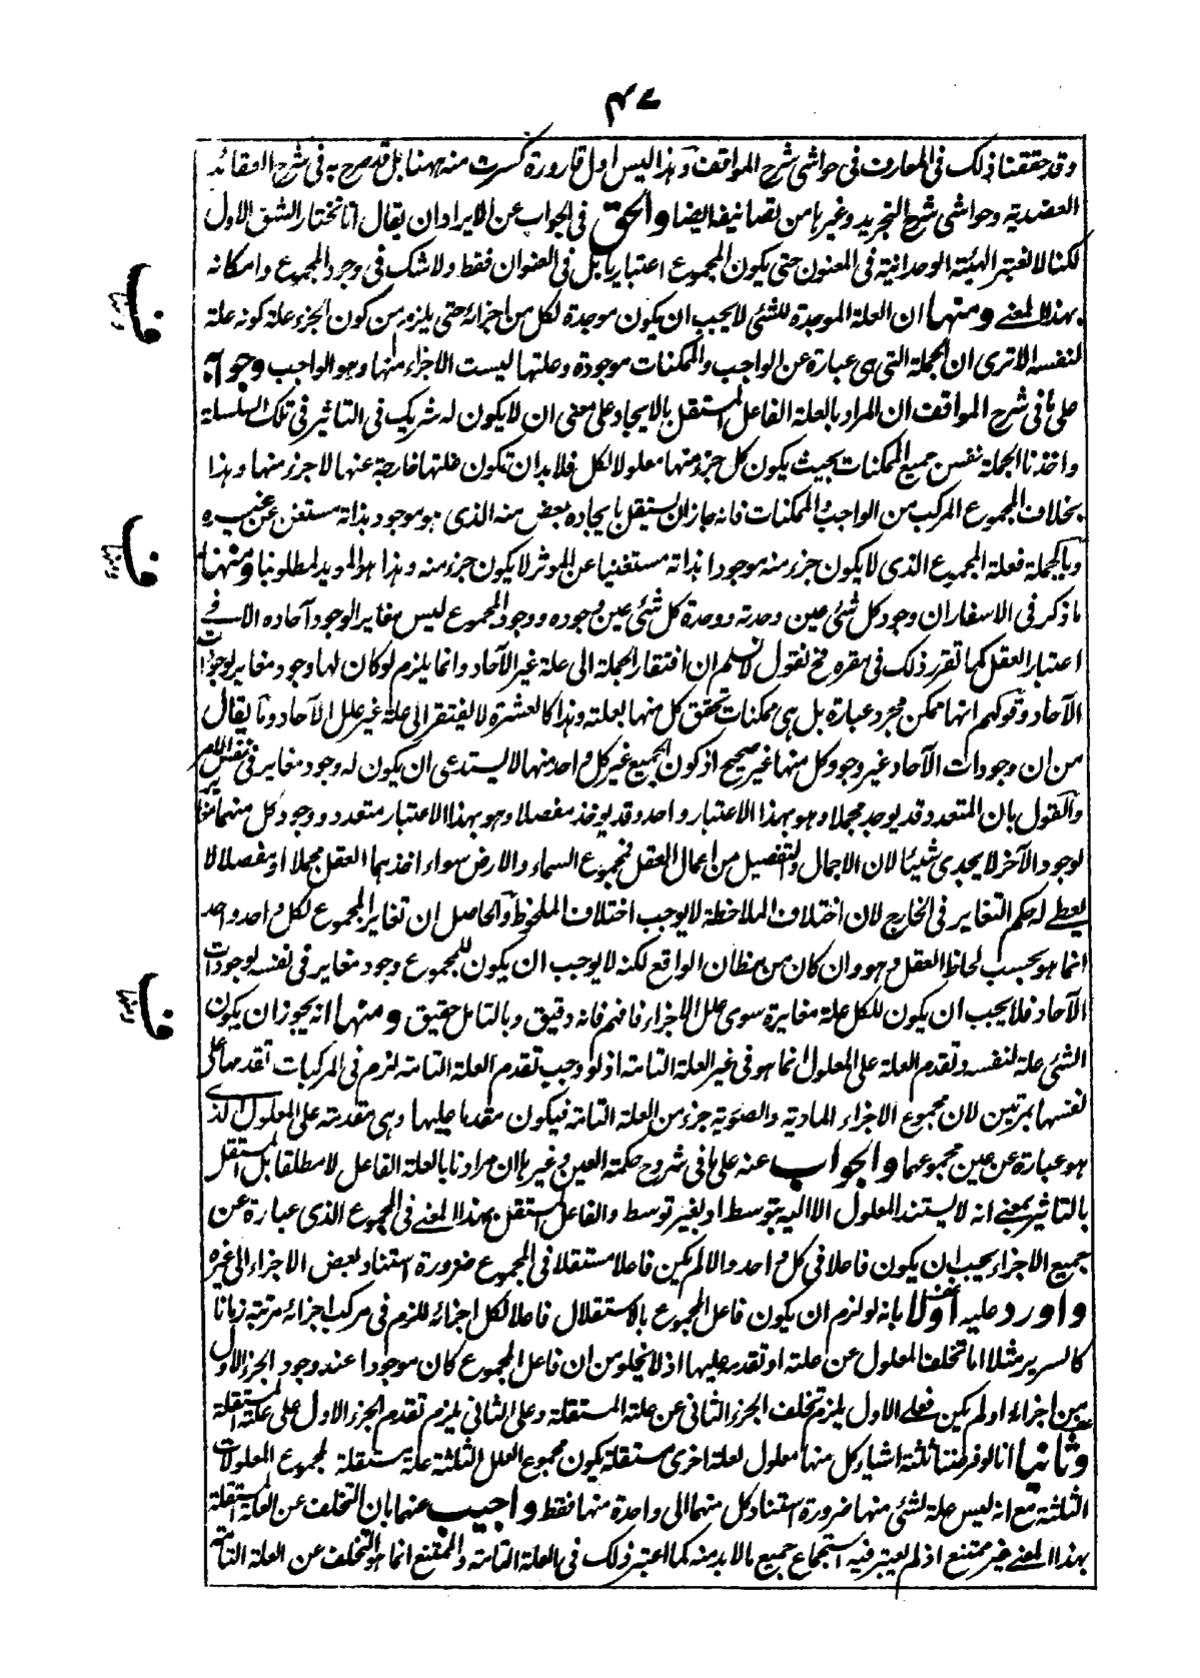 ٤٧
وقد حققنا ذلك فى المعارف فى حواشى شرح المواقف وهذا ليس اول قارورة كسرت منه ههنا بل قد صرح به فى شرح العقائد
العضدية وحواشى شرح التجريد وغيرها من تصانيفه ايضا والحق فى الجواب عن الايراد ان يقال انا نختار الشق الاول
لكنا لا نعتبر الهيئة الوحدانية فى المعنون حتى يكون المجموع اعتباريا بل فى العنوان فقط ولا شك فى وجود المجموع وامكانه
بهذا المعنى ومنها ان العلة الموجدة للشئ لا يجب ان يكون موجدة لكل من اجزائه حتى يلزم من كون الجزء علة كونه علة
لنفسه الا ترى ان الجملة التى هى عبارة عن الواجب والممكنات موجودة وعلتها ليست الا جزاء منها وهو الواجب وجوابه
على ما فى شرح المواقف ان المراد بالعلة الفاعل المستقل بالايجاد على معنى ان لا يكون له شريك فى التاثير فى تلك السلسلة
واخذنا الجملة نفس جميع الممكنات بحيث يكون كل جزء منها معلولا لكل فلا بد ان تكون علتها خارجة عنها لا جزء منها وهذا
بخلاف المجموع المركب من الواجب والممكنات فانه جاز ان يستقل بايجاده بعض منه الذى هو موجود بذاته مستغن عن غيره
وبالجملة فعلة المجموع الذى لا يكون جزء منه موجودا بذاته مستغنيا عن المؤثر لا يكون جزء منه وهذا هو المويد لمطلوبنا ومنها
ما ذكر فى الاسفار ان وجود كل شئ عين وحدته ووحدة كل شئ عين وجوده ووجود المجموع ليس مغاير الوجود آحاده الا فى
اعتبار العقل كما تقرر ذلك فى مقره فح نقول لا نسلم ان افتقار الجملة الى علة غير الآحاد وانما يلزم لو كان لها وجود مغاير لوجودات
الآحاد وقولكم انها ممكن مجرد عبارة بل هى ممكنات تحقق كل منها بعلته وهذا كالعشرة لا يفتقر الى علة غير علل الآحاد وما يقال
من ان وجودات الآحاد غير وجود كل منها غير صحيح اذ كون الجميع غير كل واحد منها لا يستدعى ان يكون له وجود مغاير فى نفس الامر
والقول بان المتعدد قد يوجد مجملا وهو بهذا الاعتبار واحد وقد يوخذ مفصلا وهو بهذا الاعتبار متعدد ووجود كل منهما مغاير
لوجود الآخر لا يجدى شيئا لان الاجمال والتفصيل من اعمال العقل فمجموع السماء والارض سواء اخذهما العقل مجملا او مفصلا لا
يعطى له حكم التغاير فى الخارج لان اختلاف الملاحظة لا يوجب اختلاف الملحوظ والحاصل ان تغاير المجموع لكل واحد واحد
انما هو بحسب لحاظ العقل وهو وان كان من مظان الواقع لكنه لا يوجب ان يكون للمجموع وجود مغاير فى نفسه لوجودات
الآحاد فلا يجب ان يكون للكل علة مغايرة سوى علل الاجزاء فافهم فانه دقيق وبالتامل حقيق ومنها انه يجوز ان يكون
الشئ علة لنفسه وتقدم العلة على المعلول انما هو فى غير العلة التامة اذ لو وجب تقدم العلة التامة لزم فى المركبات تقدمها على
نفسها بمرتبتين لان مجموع الاجزاء المادية والصورية جزء من العلة التامة فيكون مقدما عليها وهى متقدمة على المعلول الذى
هو عبارة عن عين مجموعها والجواب عنه على ما فى شروح حكمة العين وغيرها ان مرادنا بالعلة الفاعل لا مطلقا بل المستقل
بالتاثير بمعنى انه لا يستند المعلول الا اليه بتوسط او بغير توسط والفاعل المستقل بهذا المعنى فى المجموع الذى عبارة عن
جميع الاجزاء يجب ان يكون فاعلا فى كل واحد والا لم يكن فاعلا مستقلا فى المجموع ضرورة استناد بعض الاجزاء الى غيره
واورد عليه اولا بانه لو لزم ان يكون فاعل المجموع بالاستقلال فاعلا لكل اجزائه للزم فى مركب اجزائه مرتبة زمانا
كالسرير مثلا اما تخلف المعلول عن علته او تقدمه عليها اذ لا يخلو من ان فاعل المجموع كان موجودا عند وجود الجزء الاول
من اجزائه او لم يكن فعلى الاول يلزم تخلف الجزء الثانى عن علته المستقلة وعلى الثانى يلزم تقدم الجزء الاول على علته المستقلة
وثانيا انا لو فرضنا ثلثة اشياء كل منها معلول لعلة اخرى مستقلة يكون مجموع العلل الثلثة علة مستقلة لمجموع المعلولات
الثلثة مع انه ليس علة لشئ منها ضرورة استناد كل منها الى واحدة منها فقط واجيب عنها بان التخلف عن العلة المستقلة
بهذا المعنى غير ممتنع اذ لم يعتبر فيه استجماع جميع ما لا بد منه كما اعتبر ذلك فى العلة التامة والممتنع انما هو التخلف عن العلة التامة
ف ومنها
ف ومنها
ف ومنها